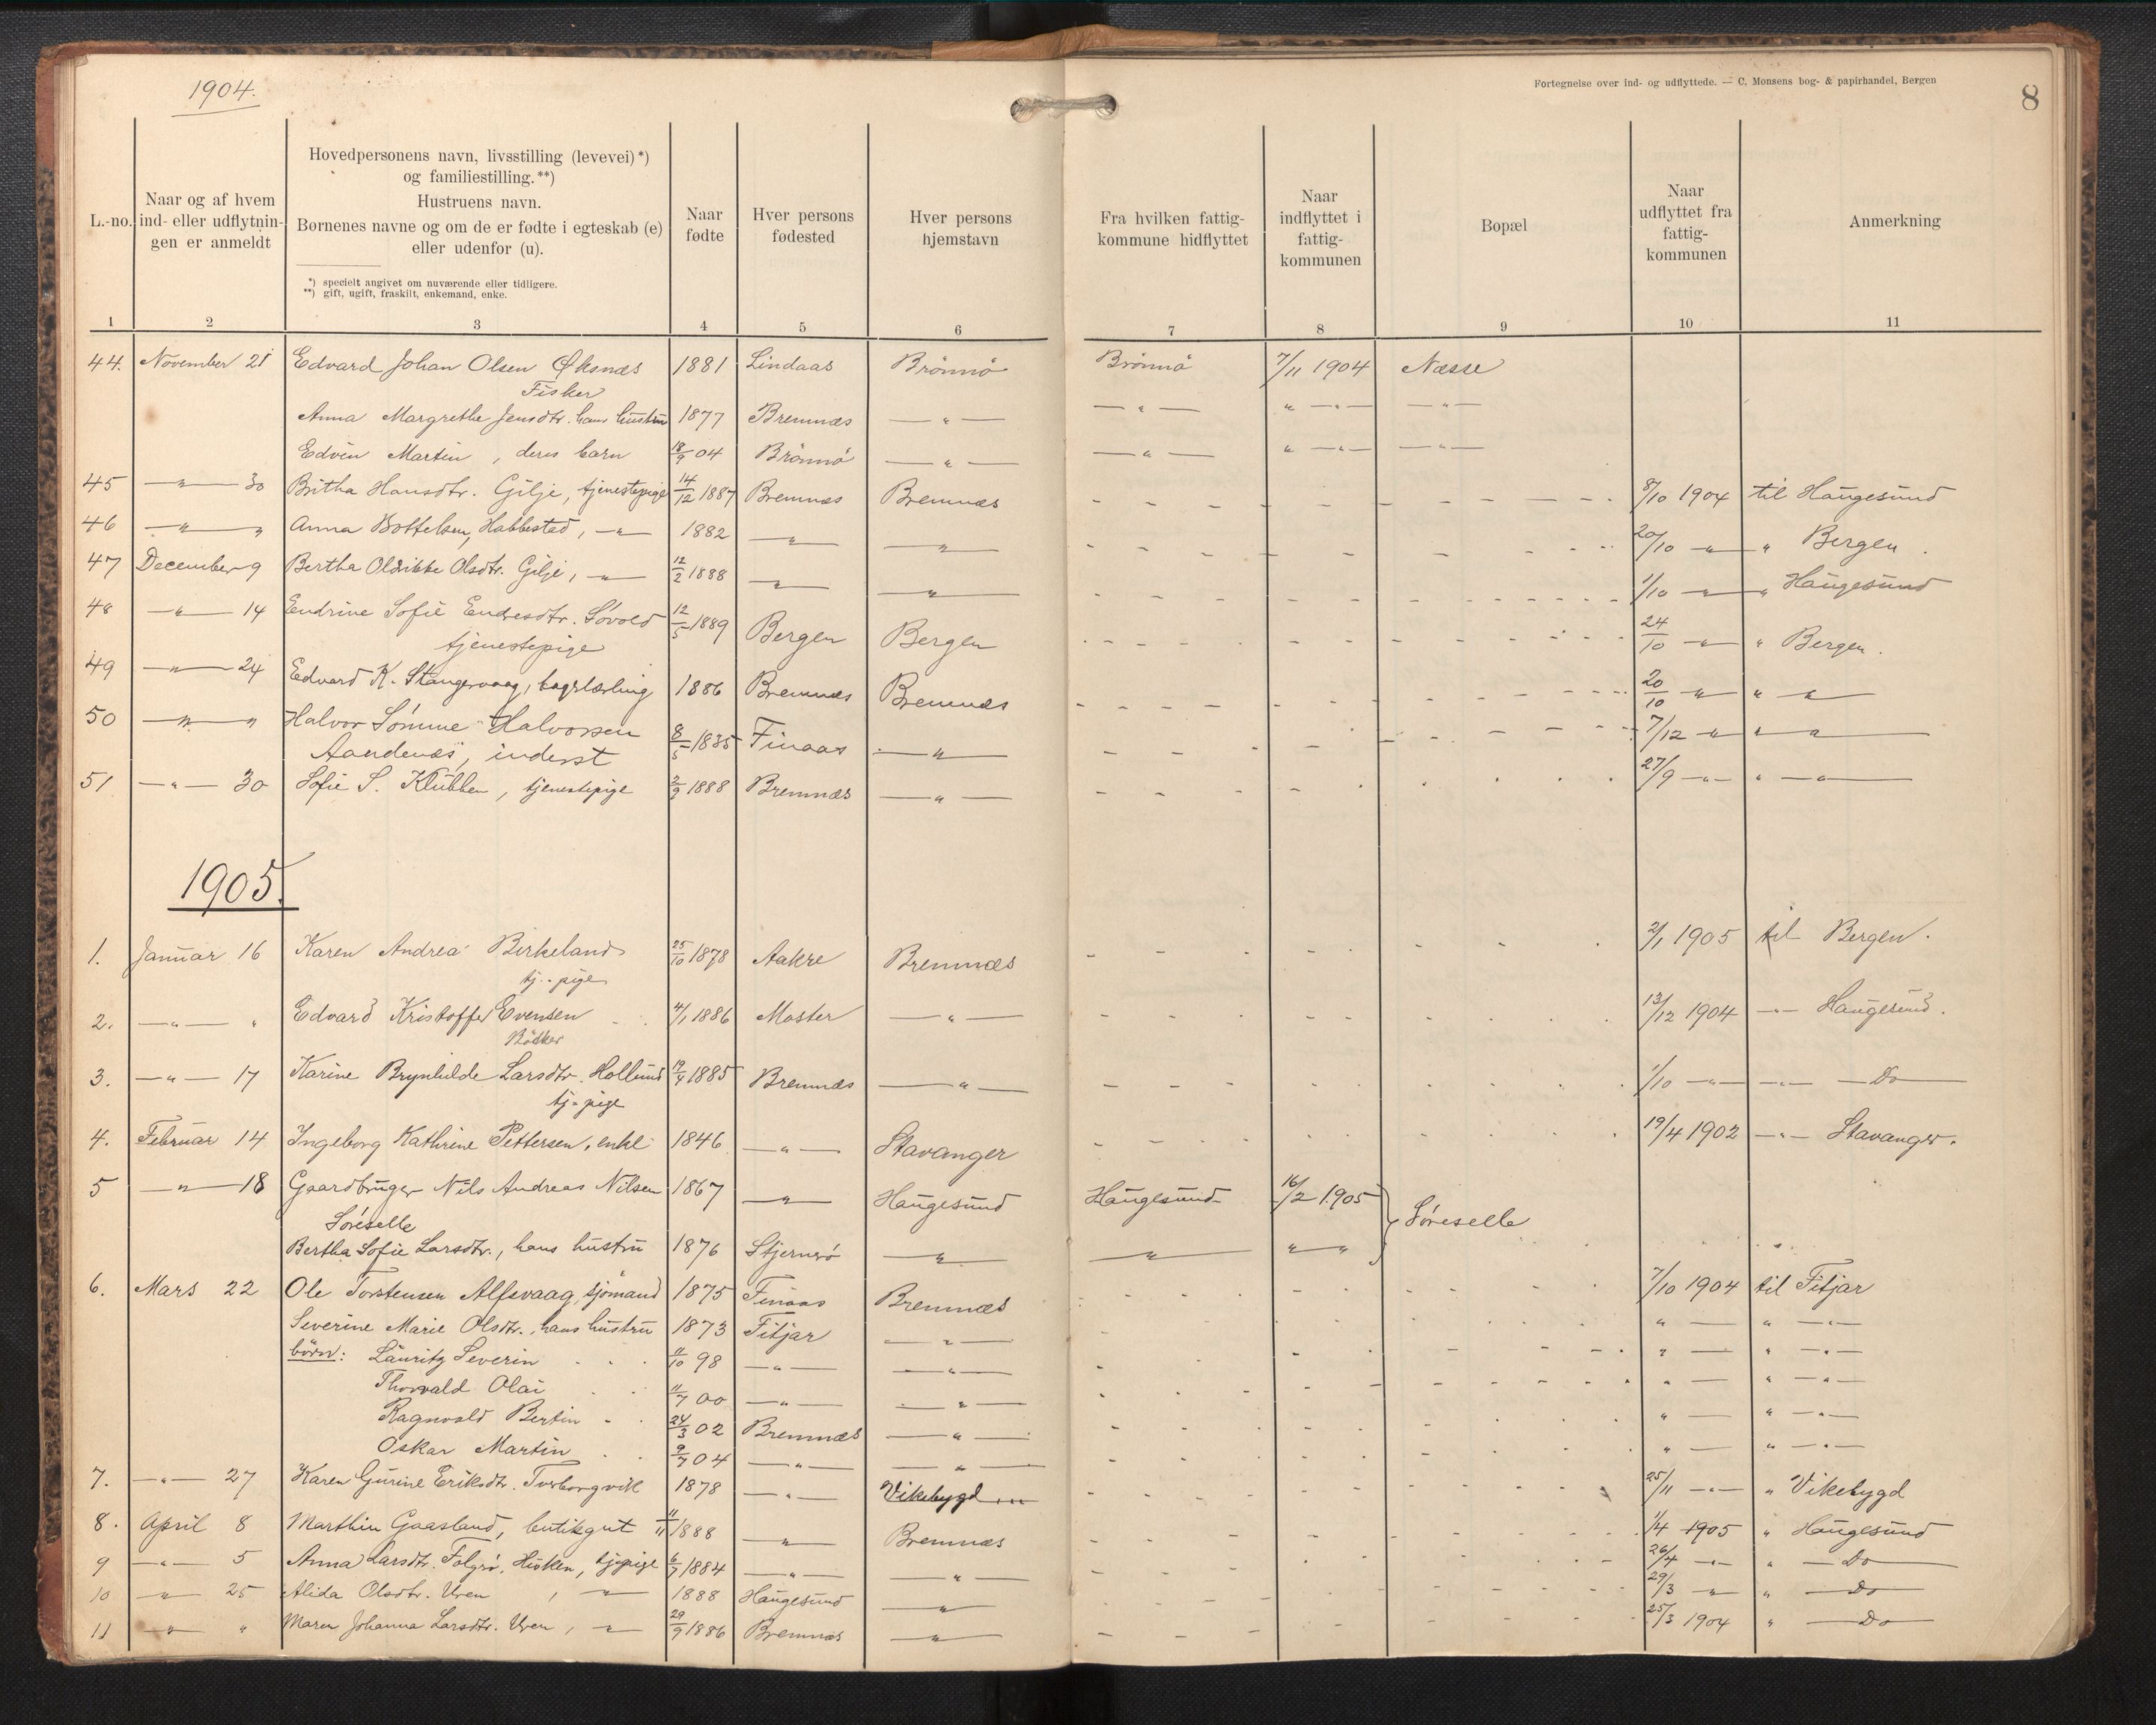 1904.
Fortegnelse over ind- og udflyttede. — C. Monsens bog- & papirhandel, Bergen
8
L.-no.
Naar og af hvem ind- eller udflytnin- gen er anmeldt
Hovedpersonens navn, livsstilling (levevei) *) og familiestilling. **)
Hustruens navn.
Børnenes navne og om de er fødte i egteskab (e) eller udenfor (u).
*) specielt angivet om nuværende eller tidligere.
**) gift, ugift, fraskilt, enkemand, enke.
Naar fødte
Hver persons fødested
Hver persons hjemstavn
Fra hvilken fattig- kommune hidflyttet
Naar indflyttet i fattig- kommunen
Bopæl
Naar udflyttet fra fattig- kommunen
Anmerkning
1 2 3 4 5 6 7 8 9 10 11
44. November 21 Edvard Johan Olsen Øksnæs 1881 Lindaas Brönnö Brönnö 7/11 1904 Næsse
Fisker
Anna Margrethe Jensdtr. hans hustru 1877 Bremnæs — " — — " — " — " — — " —
Edvin Martin, deres barn 18/9 04 Brönnö — " — — " — " — " — — " —
45 — " — 30 Britha Hansdtr. Gilje, tjenestepige 14/12 1887 Bremnæs Bremnæs 8/10 1904 til Haugesund
46 — " — " Anna Bottelsen, Habbestad, — " — 1882 — " — — " — 20/10 — " — " Bergen.
47 December 9 Bertha Oldikke Olsdtr. Gilje, — " — 12/2 1888 — " — — " — 1/10 — " — " Haugesund
48 — " — 14 Endrine Sofie Endresdtr. Søvold 12/5 1889 Bergen Bergen 24/10 — " — " Bergen.
tjenestepige
49 — " — 24 Edvard K. Stangervaag, bagerlærling 1886 Bremnæs Bremnæs 20/10 — " — " — " —
50 — " — " Halvor Sømme Halvorsen 8/5 1835 Finaas — " — 7/12 — " — " — " —
inderst
51 — " — 30 Sofie S. Klubben, tjenestepige 2/9 1888 Bremnæs — " — 27/9 — " — " — " —
1905.
1. Januar 16 Karen Andrea Birkeland 25/10 1878 Aakre Bremnæs 2/1 1905 til Bergen.
tj.-pige
2. — " — " Edvard Kristoffer Evensen 4/1 1886 Moster — " — 13/12 1904 — " — Haugesund.
Bödker
3. — " — 17 Karine Brynhilde Larsdtr. Hollund 19/4 1885 Bremnæs — " — 1/10 — " — — " — Do
tj-pige
4. Februar 14 Ingeborg Kathrine Pettersen, enke 1846 — " — Stavanger 19/4 1902 — " — Stavanger.
5 — " — 18 Gaardbruger Nils Andreas Nilsen 1867 — " — Haugesund Haugesund 16/2 1905 Søreselle
Søreselle
Bertha Sofie Larsdtr., hans hustru 1876 Stjernrö — " — — " — " "
6. Mars 22 Ole Torstensen Alfsvaag, sjömand 1875 Finaas Bremnæs 7/10 1904 til Fitjar
Severine Marie Olsdtr., hans hustru 1873 Fitjar — " — " — " — " —
børn: Lauritz Severin 11/10 98 — " — — " — " — " — " —
Thorvald Olai 11/7 00 — " — — " — " — " — " —
Ragnvald Bertin 24/3 02 Bremnæs — " — " — " — " —
Oskar Martin 9/7 04 — " — — " — " — " — " —
7. — " — 27 Karen Gurine Eriksdtr. Torborgvik 1878 — " — Vikebygd 25/11 — " — " Vikebygd
8. April 8 Marthin Gaasland, butikgut 11/11 1888 — " — Bremnæs 1/4 1905 " Haugesund
9 — " — 5 Anna Larsdtr. Folgrø, Hisken, tj.pige 6/7 1884 — " — — " — 26/4 — " — " — Do —
10 — " — 25 Alida Olsdtr. Uren, — " — 1888 Haugesund — " — 29/3 — " — " — Do —
11 — " — " Maren Johanna Larsdtr. Uren, — " — 29/9 1886 Bremnæs — " — 25/3 1904 " — Do —